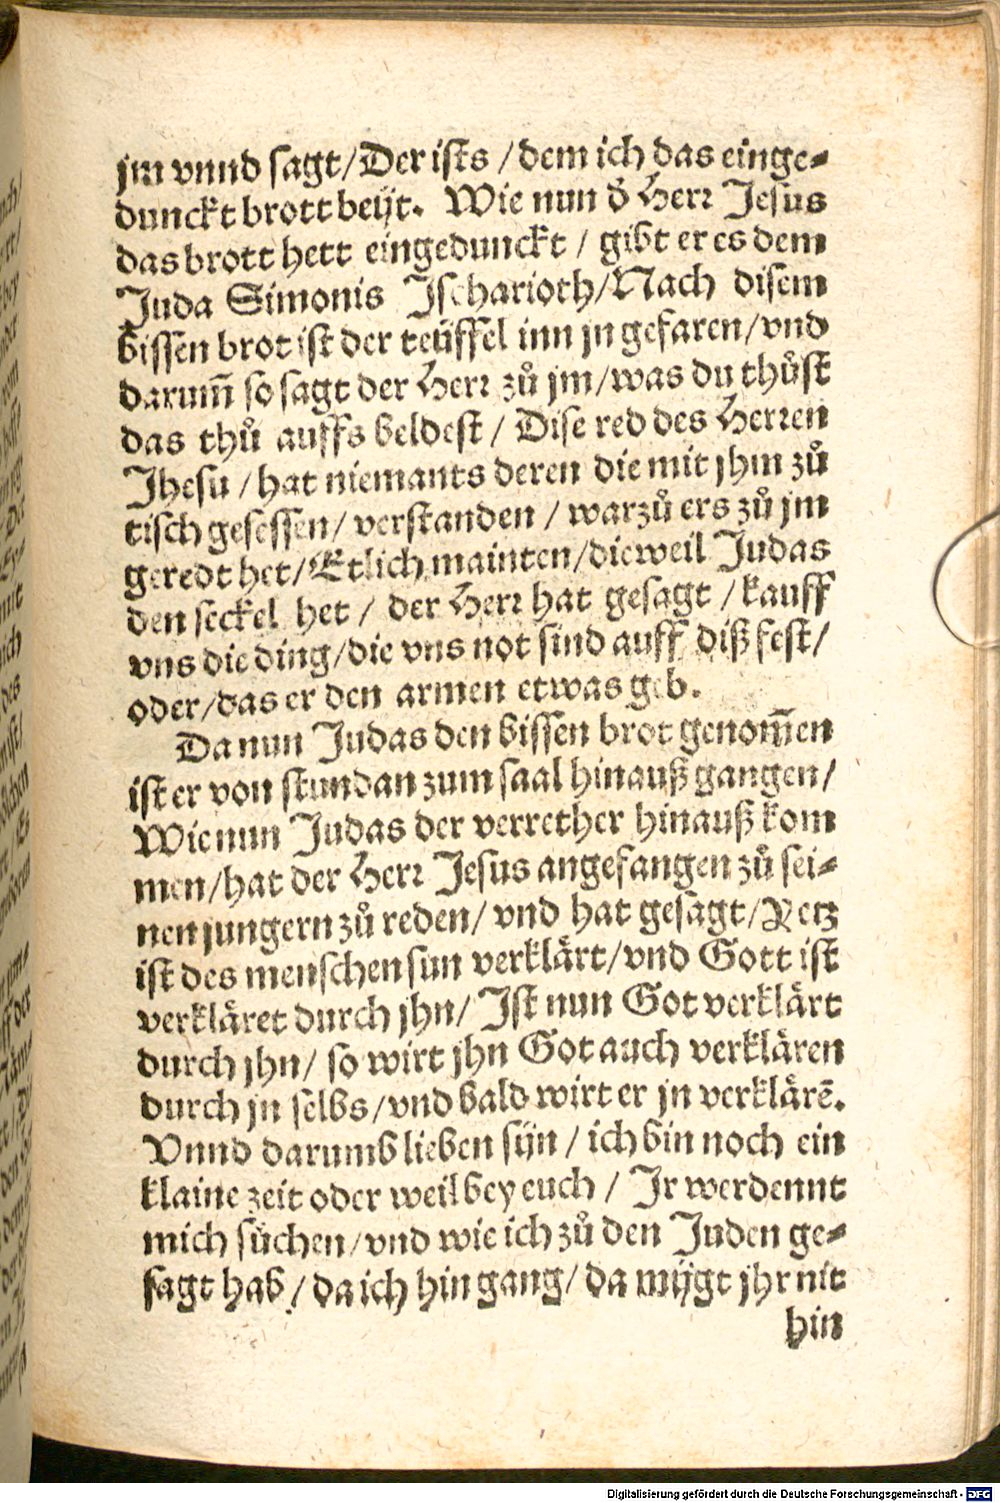 jm vnnd sagt/Der ists /dem ich das einge⸗
dunckt brott beijt. Wie nun d̕ Herr Jesus
das brott hett eingedunckt / gibt er es dem
Juda Simonis Jscharioth/Nach disem
bissen brot ist der teüffel inn jn gefaren/vnd
darum̅ so sagt der Herr zů jm/was du thůst
das thů auffs beldest / Dise red des Herren
Jhesu /hat niemants deren die mit jhm zů
tisch gesessen/ verstanden / warzů ers zů jm
geredt het/Etlich mainten/dieweil Judas
den seckel het / der Herr hat gesagt /kauff
vns die ding/die vns not sind auff diß fest/
oder/das er den armen etwas geb.
Da nun Judas den bissen brot genom̅en
ist er von stundan zum saal hinauß gangen/
Wie nun Judas der verrether hinauß kom
men/hat der Herr Jesus angefangen zů sei⸗
nen jungern zů reden/ vnd hat gesagt/Yetz
ist des menschen sun verklärt/vnd Gott ist
verkläret durch jhn/ Jst nun Got verklärt
durch jhn/ so wirt jhn Got auch verklären
durch jn selbs /vnd bald wirt er jn verklärē.
Vnnd darumb lieben sijn / ich bin noch ein
klaine zeit oder weil bey euch / Jr werdennt
mich sůchen/vnd wie ich zů den Juden ge⸗
sagt hab / da ich hin gang/ da mijgt jhr nit
hin
Digitalisierung gefördert durch die Deutsche Forschungsgemeinschaft - DFG